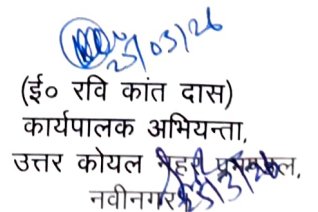 23/03/26
(ई० रवि कांत दास)
कार्यपालक अभियन्ता,
उत्तर कोयल नहर प्रमण्डल,
नवीनगर
23/3/26